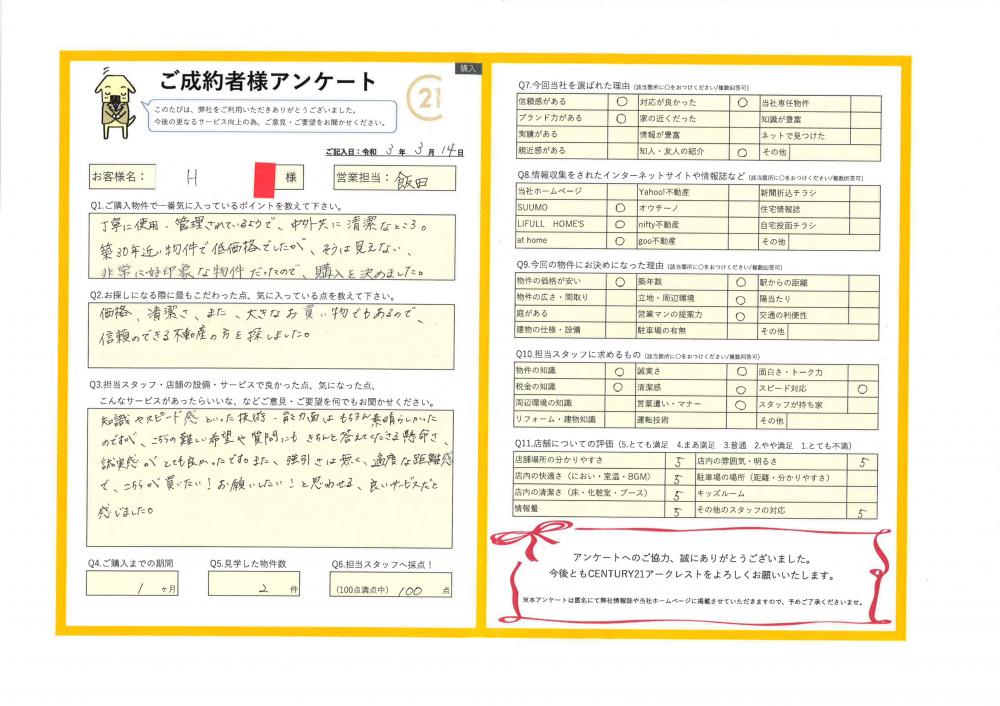 購入
ご成約者様アンケート
C21
このたびは、弊社をご利用いただきありがとうございました。
今後の更なるサービス向上の為、ご意見・ご要望をお聞かせください。
ご記入日：令和 3 年 3 月 14 日
お客様名： H 様
営業担当： 飯田
Q1.ご購入物件で一番気に入っているポイントを教えて下さい。
丁寧に使用・管理されているようで、中外共に清潔なところ。
築30年近い物件で低価格でしたが、そうは見えない
非常に好印象な物件だったので、購入を決めました。
Q2.お探しになる際に最もこだわった点、気に入っている点を教えて下さい。
価格、清潔さ、また、大きなお買い物でもあるので、
信頼のできる不動産の方を探しました。
Q3.担当スタッフ・店舗の設備・サービスで良かった点、気になった点、
こんなサービスがあったらいいな、などご意見・ご要望を何でもお聞かせください。
知識やスピード感といった技術・能力面はもちろん素晴らしかった
のですが、こちらの難しい希望や質問にもきちんと答えてくださる懸命さ、
誠実感がとても良かったです。また、強引さは無く、適度な距離感
で、こちらが買いたい！お願いしたい！と思わせる、良いサービスだと
感じました。
Q4.ご購入までの期間
1 ヶ月
Q5.見学した物件数
2 件
Q6.担当スタッフへ採点！
(100点満点中) 100 点
Q7.今回当社を選ばれた理由（該当箇所に○をおつけください/複数回答可）
信頼感がある ○ 対応が良かった ○ 当社専任物件
ブランド力がある ○ 家の近くだった 知識が豊富
実績がある 情報が豊富 ネットで見つけた
親近感がある 知人・友人の紹介 ○ その他
Q8.情報収集をされたインターネットサイトや情報誌など（該当箇所に○をおつけください/複数回答可）
当社ホームページ Yahoo!不動産 新聞折込チラシ
SUUMO ○ オウチーノ 住宅情報誌
LIFULL HOME'S ○ nifty不動産 自宅投函チラシ
at home ○ goo不動産 その他
Q9.今回の物件にお決めになった理由（該当箇所に○をおつけください/複数回答可）
物件の価格が安い ○ 築年数 ○ 駅からの距離
物件の広さ・間取り 立地・周辺環境 ○ 陽当たり
庭がある 営業マンの提案力 ○ 交通の利便性
建物の仕様・設備 駐車場の有無 その他
Q10.担当スタッフに求めるもの（該当箇所に○をおつけください/複数回答可）
物件の知識 ○ 誠実さ ○ 面白さ・トーク力
税金の知識 ○ 清潔感 ○ スピード対応 ○
周辺環境の知識 言葉遣い・マナー ○ スタッフが持ち家
リフォーム・建物知識 運転技術 その他
Q11.店舗についての評価（5.とても満足 4.まあ満足 3.普通 2.やや満足 1.とても不満）
店舗場所の分かりやすさ 5 店内の雰囲気・明るさ 5
店内の快適さ（におい・室温・BGM） 5 駐車場の場所（距離・分かりやすさ）
店内の清潔さ（床・化粧室・ブース） 5 キッズルーム
情報量 5 その他のスタッフの対応 5
アンケートへのご協力、誠にありがとうございました。
今後ともCENTURY21アークレストをよろしくお願いいたします。
※本アンケートは匿名にて弊社情報誌や当社ホームページに掲載させていただきますので、予めご了承くださいませ。